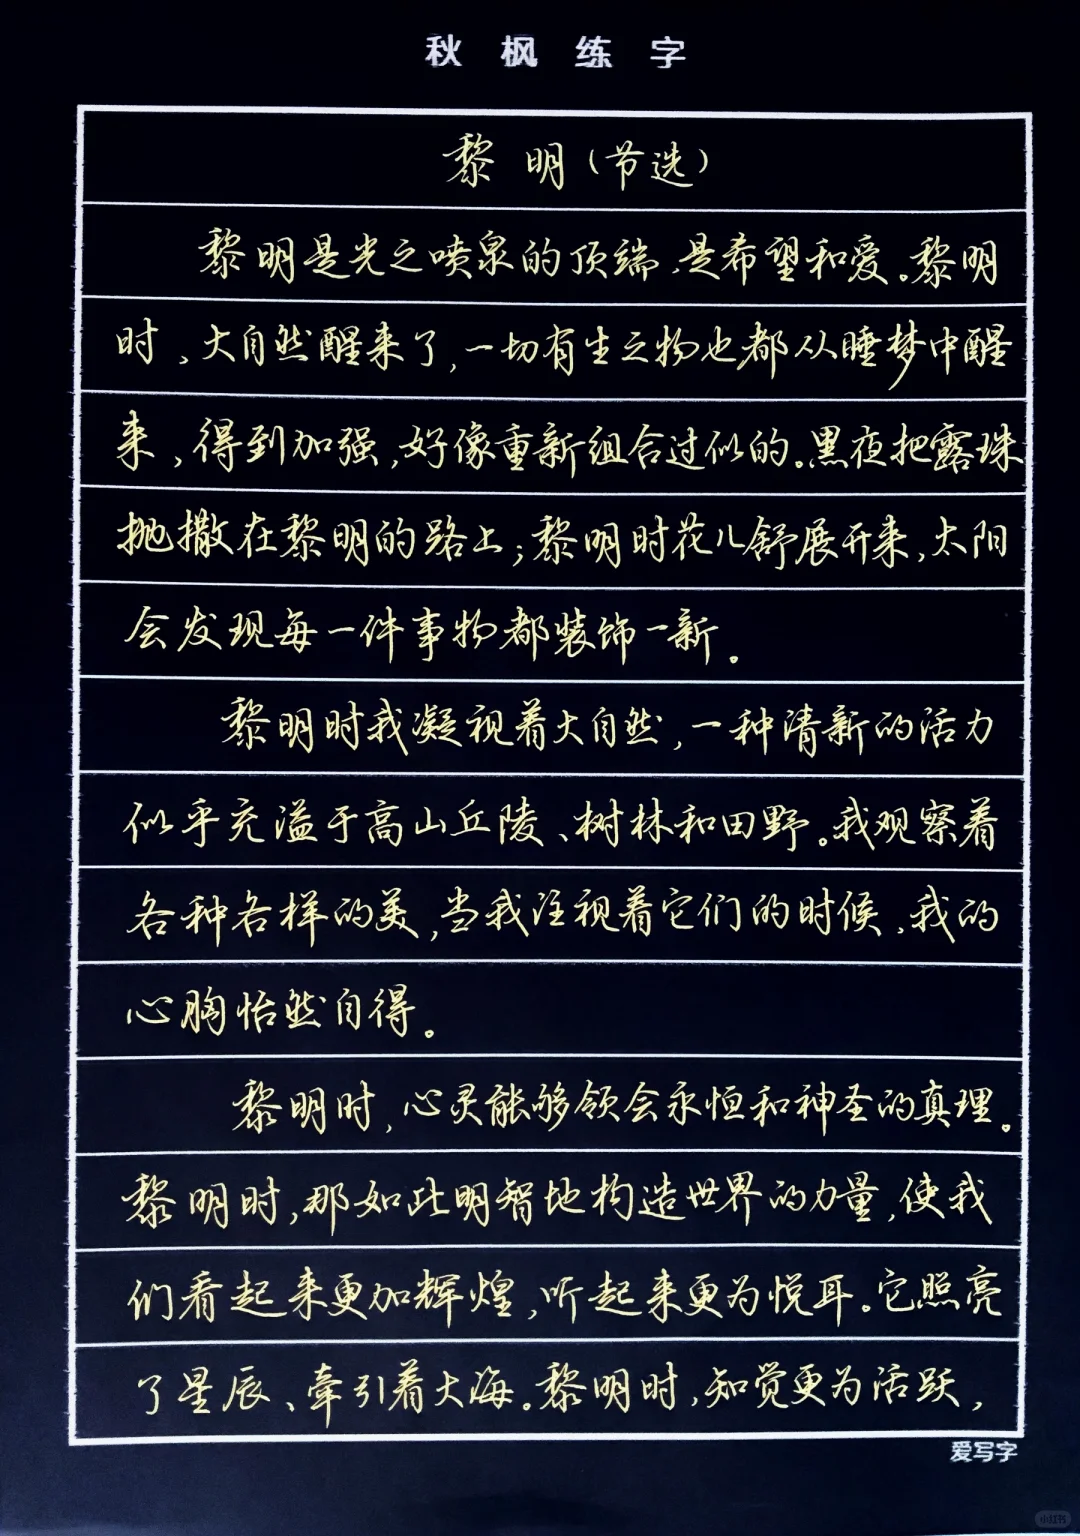 秋枫练字
黎明(节选)
黎明是光之喷泉的顶端,是希望和爱。黎明
时,大自然醒来了,一切有生之物也都从睡梦中醒
来,得到加强,好像重新组合过似的。黑夜把露珠
抛撒在黎明的路上;黎明时花儿舒展开来,太阳
会发现每一件事物都装饰一新。
黎明时我凝视着大自然,一种清新的活力
似乎充溢于高山丘陵、树林和田野。我观察着
各种各样的美,当我注视着它们的时候,我的
心胸怡然自得。
黎明时,心灵能够领会永恒和神圣的真理。
黎明时,那如此明智地构造世界的力量,使我
们看起来更加辉煌,听起来更为悦耳。它照亮
了星辰、牵引着大海。黎明时,知觉更为活跃,
爱写字
小红书